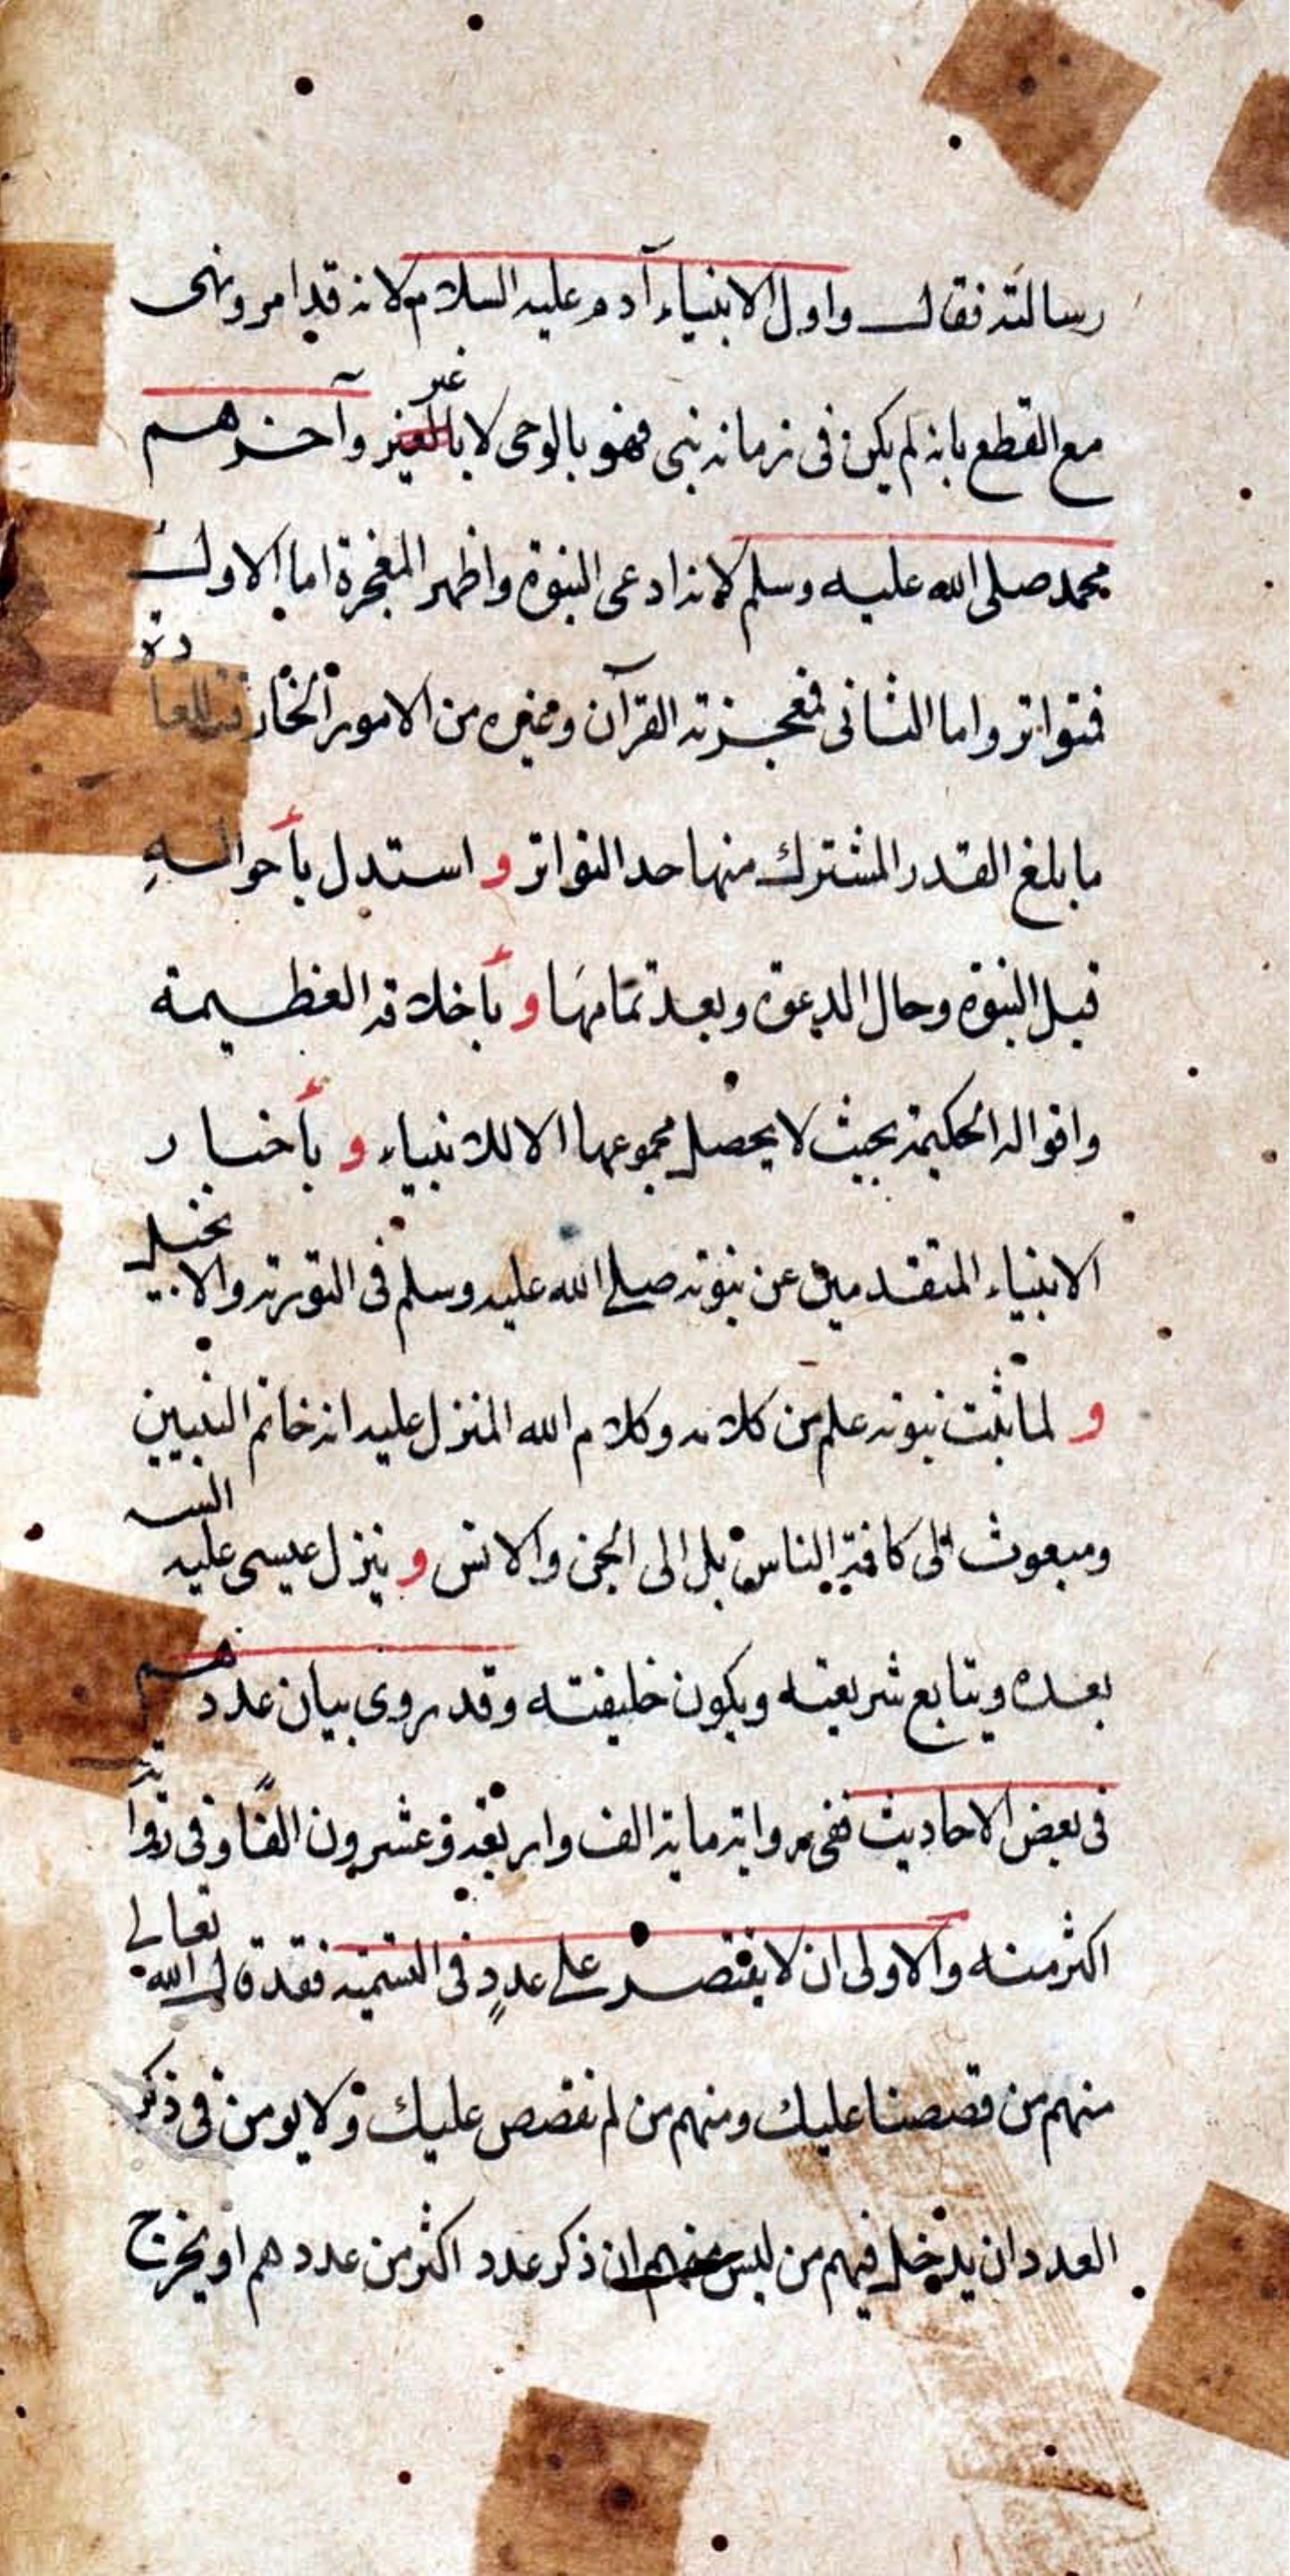 رسالته فقال واول الانبياء آدم عليه السلام لانه قد امر ونهى
مع القطع بانه لم يكن فى زمانه نبى فهو بالوحى لا غير وآخرهم
محمد صلى الله عليه وسلم لانه ادعى النبوة واظهر المعجزة اما الاول
فتواتر واما الثانى فمعجزته القرآن وغيره من الامور الخارقة للعادة
ما بلغ القدر المشترك منها حد التواتر و استدل بأحواله
قبل النبوة وحال الدعوة وبعد تمامها و بأخلاقه العظيمة
واقواله الحكيمة بحيث لا يحصل مجموعها الا للانبياء و بأخبار
الانبياء المتقدمين عن نبوته صلى الله عليه وسلم فى التورته والانجيل
و لما ثبت نبوته علم من كلامه وكلام الله المنزل عليه انه خاتم النبيين
ومبعوث الى كافة الناس بل الى الجن والانس و ينزل عيسى عليه
بعده ويتابع شريعته ويكون خليفته وقد روى بيان عددهم
فى بعض الاحاديث ففى رواية ماية الف واربعة وعشرون الفًا وفى رواية
اكثر منه والاولى ان لا يقتصر على عددٍ فى التسمية فقد قال الله تعالى
منهم من قصصنا عليك ومنهم من لم نقصص عليك ولا يومن فى ذكر
العدد ان يدخل فيهم من ليس منهم ان ذكر عدد اكثر من عددهم او يخرج